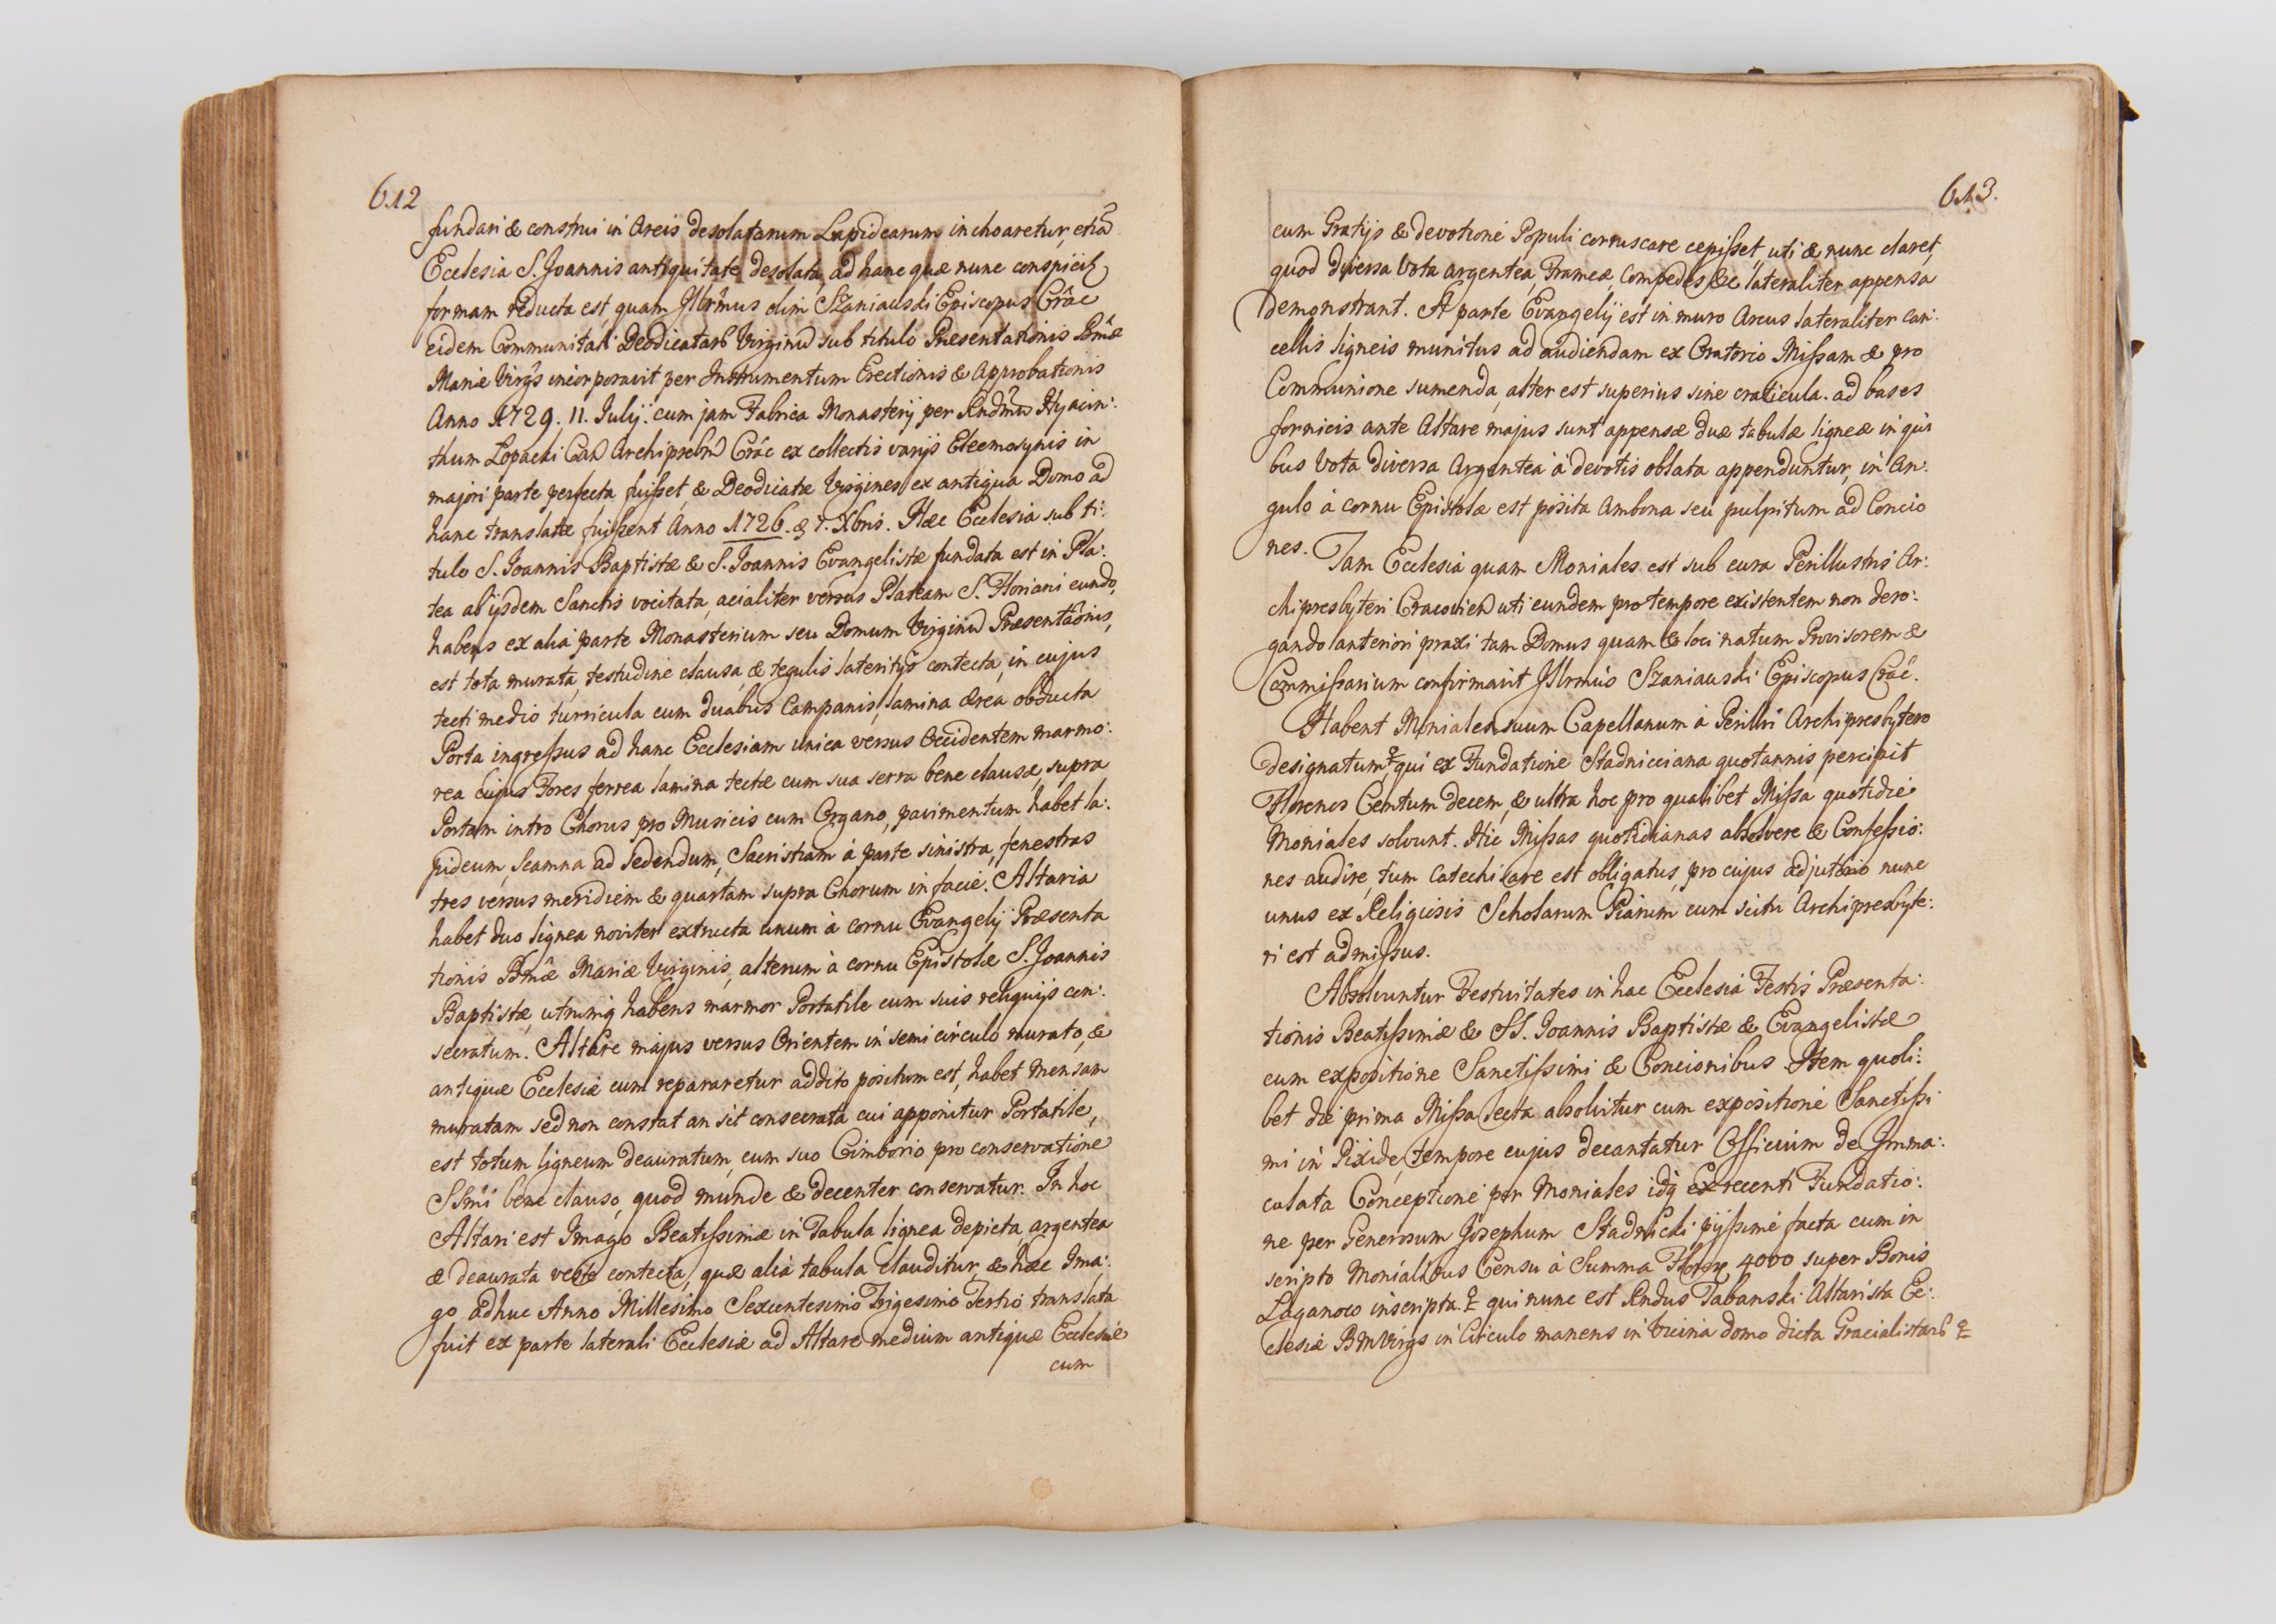 612
fundari & construi in Areis desolatarum Lapidearum inchoaretur, etiã
Ecclesia S. Joannis antiquitate desolata, ad hanc quæ nunc conspicit~
formam reducta est quam Jllrm̃us olim Szaniauski Episcopus Crãc
eidem Communitati Deodicatarũ Virginũ sub titulo Præsentationis Bm̃æ
Mariæ Virgs incorporavit per Instrumentum Erectionis & Approbationis
Anno 1729. 11. Julij. cum jam Fabrica Monasterij per Rndm̃ũ Hyacin:
thum Lopacki Can̄ Archiprebm̃ Crãc ex collectis varijs Eleemosynis in
majori parte perfecta fuisset & Deodicatæ Virgines ex antiqua Domo ad
hanc translatæ fuissent Anno 1726. 7. Xbris. Hæc Ecclesia sub ti:
tulo S. Joannis Baptistæ & S. Joannis Evangelistæ fundata est in Pla:
tea ab ijsdem Sanctis vocitata, acialiter versus Plateam S. Floriani eundo,
habens ex alia parte Monasterium seu Domum Virginũ Præsentãonis,
est tota murata, testudine clausa, & tegulis lateritijs contecta, in cujus
tecti medio turricula cum duabus Campanis, lamina ærea obducta
Porta ingressus ad hanc Ecclesiam unica versus Occidentem marmo:
rea cujus Fores ferrea lamina tectæ cum sua serra bene clausæ, supra
Portam intro Chorus pro Musicis cum Organo, pavimentum habet la:
pideum, Scamna ad sedendum, Sacristiam à parte sinistra, fenestras
tres versus meridiem & quartam supra Chorum in facie. Altaria
habet duo lignea noviter extructa unum à cornu Evangelij Præsenta
tionis Bm̃æ Mariæ Virginis, alterum à cornu Epistolæ S. Joannis
Baptistæ, utrumq; habens marmor Portatile cum suis reliquijs con:
secratum. Altare majus versus Orientem in semicirculo murato, &
antiquæ Ecclesiæ cum repararetur addito positum est, habet Mensam
muratam sed non constat an sit consecrata cui apponitur Portatile,
est totum ligneum deauratum, cum suo Cimborio pro conservatione
SSm̃i bene clauso, quod munde & decenter conservatur. In hoc
Altari est Imago Beatissimæ in Tabula lignea depicta, argentea
& deaurata veste contecta, quæ alia tabula clauditur, & hæc Ima:
go adhuc Anno Millesimo Sexcentesimo Trigesimo Tertio translata
fuit ex parte laterali Ecclesiæ ad Altare medium antiquæ Ecclesiæ
cum
613.
cum Gratijs & devotione Populi corruscare cepisset, uti & nunc claret,
quod diversa Vota argentea, Frameæ, Compedes &c lateraliter appensa
demonstrant. A parte Evangelij est in muro Arcus lateraliter can:
cellis ligneis munitus ad audiendam ex Oratorio Missam & pro
Communione sumenda, alter est superius sine craticula. ad bases
fornicis ante Altare majus sunt appensæ duæ tabulæ ligneæ in qui
bus Vota diversa Argentea à devotis oblata appenduntur, in An:
gulo à cornu Epistolæ est posita Ambona seu pulpitum ad Concio
nes.
Tam Ecclesia quam Moniales est sub cura Perillustris Ar:
chipresbyteri Cracovien̄ uti eundem pro tempore existentem non dero:
gando anteriori praxi tam Domus quam & loci natum Provisorem &
Commissarium confirmavit Jllrm̃us Szaniauski Episcopus Crãc.
Habent Moniales suum Capellanum à Perillri Archipresbytero
designatum, qui ex Fundatione Stadnicciana quotannis percipit
Florenos Centum decem, & ultra hoc pro qualibet Missa quotidie
Moniales solvunt. Hic Missas quotidianas absolvere & Confessio:
nes audire, tum Catechizare est obligatus, pro cujus adjutorio nunc
unus ex Religiosis Scholarum Piarum cum scitu Archipresbyte:
ri est admissus.
Absolvuntur Festivitates in hac Ecclesia Festis Præsenta:
tionis Beatissimæ & SS. Joannis Baptistæ & Evangelistæ
cum expositione Sanctissimi & Concionibus Item quoli:
bet die prima Missa lecta absolvitur cum expositione Sanctissi
mi in Pixide, tempore cujus decantatur Officium de Jmma:
culata Conceptione per Moniales idq; ex recenti Fundatio:
ne per Generosum Josephum Stadnicki pijssime facta cum in
scripto Monialibus Censu à Summa Floren 4000 super Bonis
Laganow inscripta. qui nunc est Rndus Tabanski Altarista Ec:
clesiæ BMVirgs in Circulo manens in Vicina domo dicta Gracialistarũ